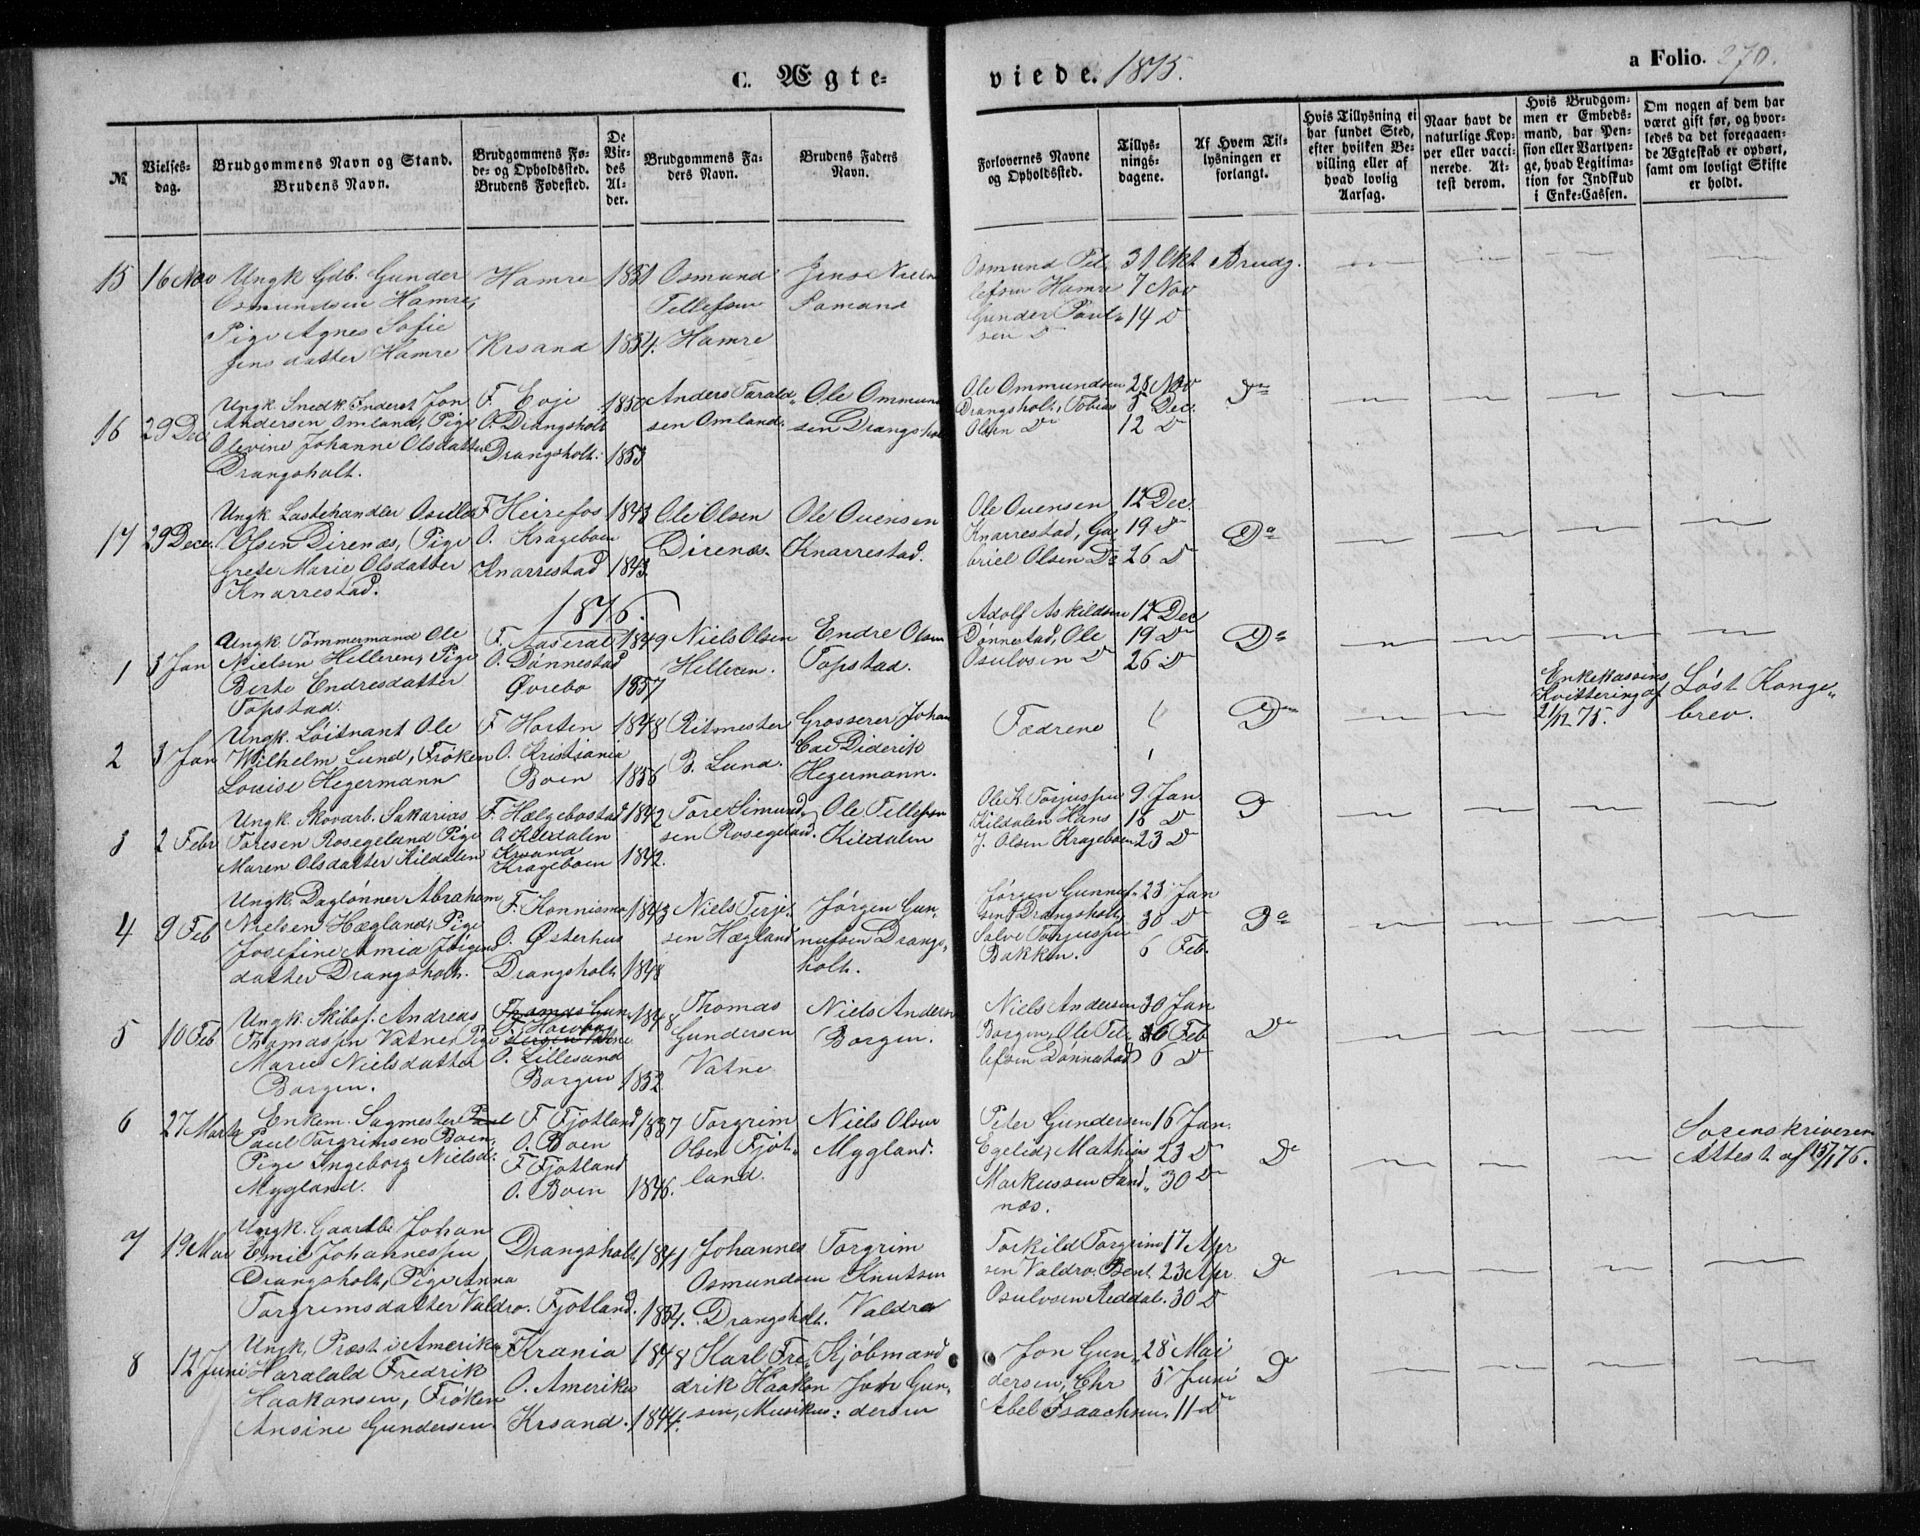 C. Ægte-
viede. 1875.
a Folio. 270.
№
Vielses-
dag.
Brudgommens Navn og Stand.
Brudens Navn.
Brudgommens Fø-
de- og Opholdssted.
Brudens Fødested.
De
Vie-
des
Al-
der.
Brudgommens Fa-
ders Navn.
Brudens Faders
Navn.
Forlovernes Navne
og Opholdssted.
Tillys-
nings-
dagene.
Af Hvem Til-
lysningen er
forlangt.
Hvis Tillysning ei
har fundet Sted,
efter hvilken Be-
villing eller af
hvad lovlig
Aarsag.
Naar havt de
naturlige Kop-
per eller vacci-
nerede. At-
test derom.
Hvis Brudgom-
men er Embeds-
mand, har Pen-
sion eller Vartpen-
ge, hvad Legitima-
tion for Indskud
i Enke-Cassen.
Om nogen af dem har
været gift før, og hvor-
ledes da det foregaaen-
de Ægteskab er ophørt,
samt om lovligt Skifte
er holdt.
15 16 Nov Ungk Gdb. Gunder
Osmundsen Hamre,
Pige Agnes Sofie
Jensdatter Hamre
Hamre
Krsand
1851
1854.
Osmund
Tellefsen
Hamre
Jens Niels
Osmund Tel-
lefsen Hamre
Gunder Paul-
sen D
31 Okt
7 Nov
14 D
Brudg.
16 29 Dec Ungk. Snedk. Inderst Jon
Andersen Omland, Pige
Olevine Johanne Olsdatter
Drangsholt.
F. Evje
O. Drangsholt
Drangsholt.
1850
1853
Anders Tarald-
sen Omland.
Ole Ommund
sen Drangsholt
Ole Ommundsen
Drangsholt, Tobias
Olsen Do
28 Nov
5 Dec.
12 D
Do
17 29 Dec. Ungk. Lastehandler Osuld
Olsen Direnæs, Pige
Grete Marie Olsdatter
Knarrestad.
F. Heirefos
O. Krageboen
Knarrestad
1843
1843.
Ole Olsen
Direnæs.
Ole Ouensen
Knarrestad.
Ole Ouensen
Knarrestad, Ga
briel Olsen Do
12 Dec.
19 D
26 D
Do
1876.
1 3 Jan Ungk. Tømmermand Ole
Nielsen Helleren, Pige
Berte Endresdatter
Topstad.
F. Aaseral
O. Dønnestad
Øvrebo
1849
1857
Niels Olsen
Helleren.
Endre Olsen
Topstad.
Adolf Askildsen
Dønnestad, Ole
Osulvsen D
12 Dec
19 D
26 D
Do
2 3 Jan Ungk. Løitnant Ole
Wilhelm Lund, Frøken
Louise Hegermann
F. Horten
O. Kristiania
Boen
1848
1856
Ritmester
B. Lund.
Grosserer Johan
Diderik
Hegermann.
Fædrene
Do
Enkekassens
Kvittering af
21/12 75.
Løst Konge-
brev.
3 2 Febr Ungk. Skovarb. Sakarias
Toresen Rosegeland Pige
Maren Olsdatter Kildalen
F. Hælgebostad
O. Kildalen
Krsand
Krageboen
1842
1842.
Tore Simund-
sen Rosegeland.
Ole Tellefsen
Kildalen
Ole K. Torjussen
Kildalen Hans
J. Olsen Krageboen
9. Jan
16 D
23 D
D
4 9 Feb Ungk. Daglønner Abraham
Nielsen Hægland, Pige
Josefine Amia Jørgens
datter Drangsholt.
F. Konnismo
O. Østerhus
Drangsholt
1843
1848
Niels Terje-
sen Hægland
Jørgen Gun-
nufsen Drangs-
holt.
Jørgen Gunnuf-
sen Drangsholt
Salve Torjussen
Bakken.
23 Jan
30 D
6 Feb.
Do
5 10 Feb Ungk. Skibsf. Andreas
Thomassen Vatne, Pige
Marie Nielsdatter
Borgen.
O. Lillesand
Borgen
1848
1852.
Thomas
Gundersen
Vatne
Niels Anders
Borgen.
Niels Andersen
Borgen, Ole Tel-
lefsen Dønnestad
30 Jan
6 Feb
6 D
Do
6 27 Marts Enkem. Sagmester
Paul Torgrimsen Boen,
Pige Ingeborg Nielsd.
Mygland.
F. Fjotland
O. Boen
F. Fjotland
O. Boen
1837
1846.
Torgrim
Olsen Fjot-
land.
Niels Olsen
Mygland.
Peter Gundersen
Egelid, Mathias
Markussen Sand-
næs.
16 Jan.
23 D
30 D
Do
Sorenskriverens
Attest af 15/1 76.
7 19 Mai Ungk. Gaardb. Johan
Emil Johannessen
Drangsholt, Pige Anna
Torgrimsdatter Valdro.
Drangsholt
Fjotland.
1841
1854.
Johannes
Osmundsen
Drangsholt.
Torgrim
Knutsen
Valdro
Torkild Torgrim-
sen Valdro. Bent
Osulvsen Reddal.
17 Apr
23 Apr.
30 D
Do
8 12 Juni Ungk. Præst i Amerika
Haralald Fredrik
Haakonsen, Frøken
Ansine Gundersen.
F. Krania
O. Amerika
Krsand.
1848
1844.
Karl Fre-
drik Haakon
sen, Musikus:
Kjøbmand
Joh Gun-
dersen
Jon Gun-
dersen, Chr
Abel Isaachsen.
28 Mai
5 Juni
11 D
Do